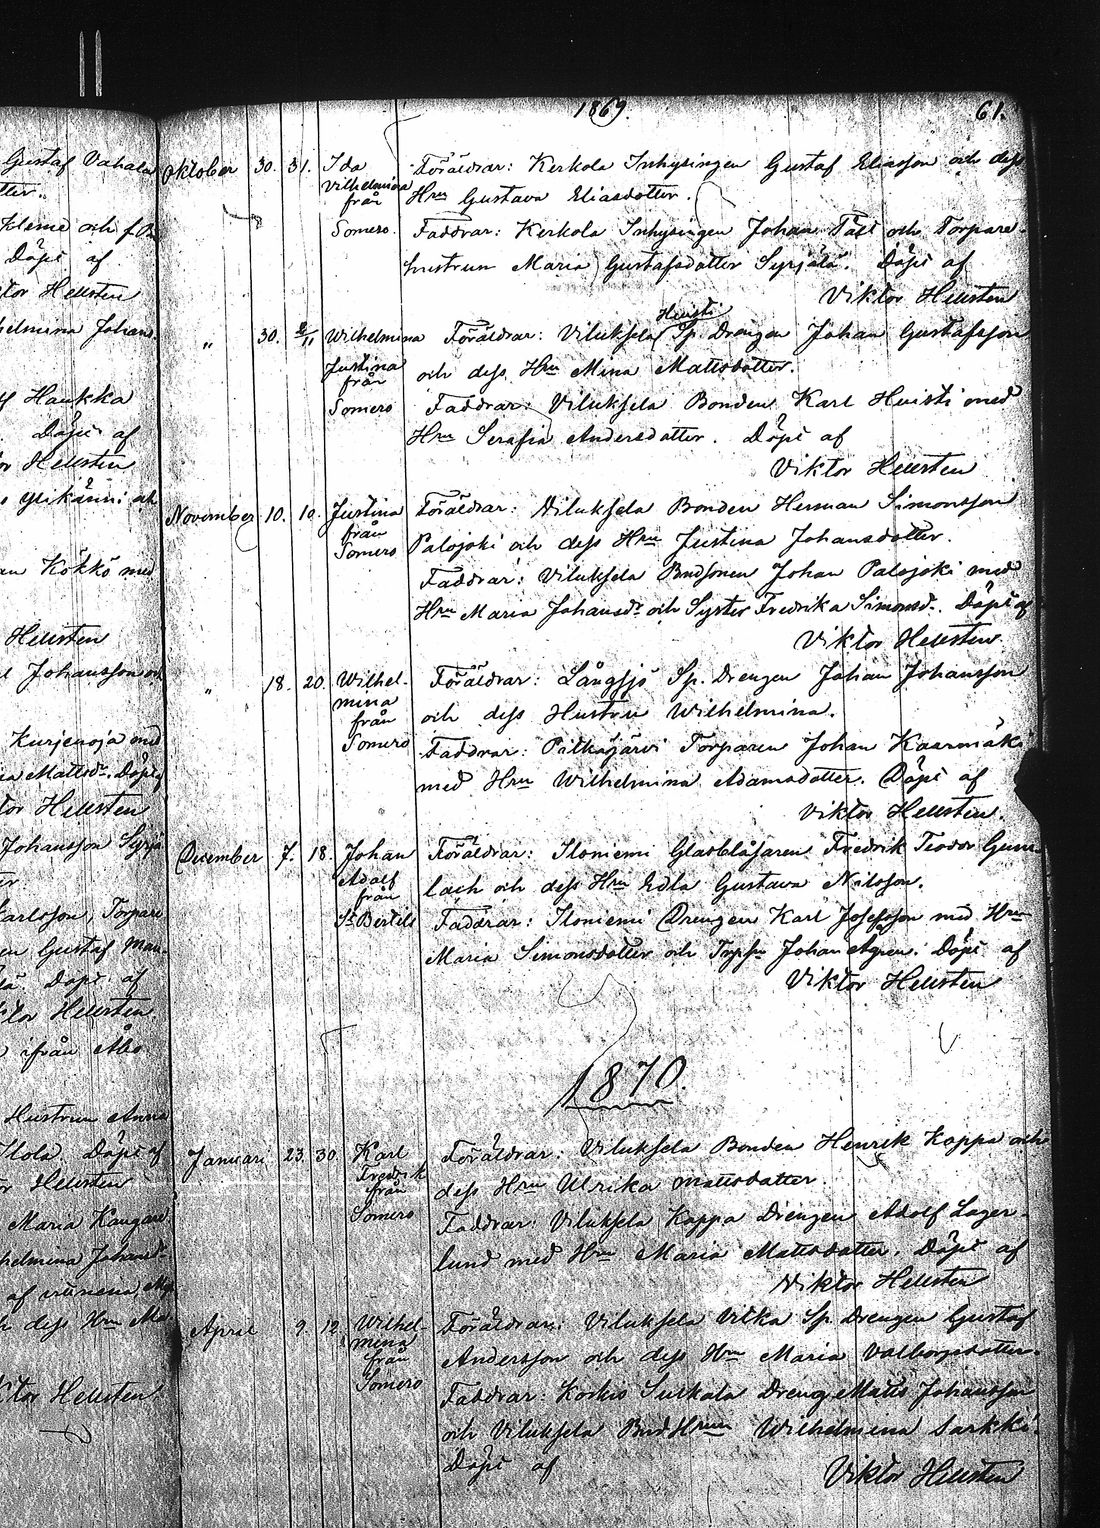 Gustaf Vahala
tter.
Kleme och
Döpt af
tor Hellsten
helmina Johans
af Haukka
Döpt af
or Hellsten
s Ylikänni och
an Kökkö med
Hellsten
l Johansson och
Kurjenoja med
ia Mattsdr. Döpt af
tor Hellsten
Johansson Syrjä
er.
Karlsson, Torpare
en Gustaf Man-
Döpt af
tor Hellsten.
ifrån Åbo
Hustrun Anna
Döpt af
r Hellsten
Maria Kangas
helmina Johansd.
h dess Hru Ma
ktor Hellsten
1869.
61.
Oktober 30. 31. Ida Vilhelmina från Somero.
Föräldrar: Kerkola Inhysingen Gustaf Eliasson och dess
Hru Gustava Eliasdotter.
Faddrar: Kerkola Inhysingen Johan Täst och Torpare-
hustrun Maria Gustafsdotter Syrjälä. Döpt af
Viktor Hellsten
" 30. 2/11 Wilhelmina Justina från Somero
Huisti
Föräldrar: Viluksela Sp. Drengen Johan Gustafsson
och dess Hru Mina Mattsdotter.
Faddrar: Viluksela Bonden Karl Huisti med
Hru Serafia Andersdotter. Döpt af
Viktor Hellsten
November 10. 10. Justina från Somero
Föräldrar: Viluksela Bonden Herman Simonsson
Palojoki och dess Hru Justina Johansdotter.
Faddrar: Viluksela Bndsonen Johan Palojoki med
Hru Maria Johansdr och Syster Fredrika Simonsd. Döpt af
Viktor Hellsten.
" 18. 20. Wilhel-
mina från Somero
Föräldrar: Långsjö Sp. Drengen Johan Johansson
och dess Hustru Wilhelmina.
Faddrar: Pitkäjärvi Torparen Johan Kaarmäki
med Hru Wilhelmina Adamsdotter. Döpt af
Viktor Hellsten.
December 7. 18. Johan Adolf från St Bertils
Föräldrar: Iloniemi Glasblåsaren Fredrik Teodor Gum-
lach och dess Hru Edla Gustava Nilsson.
Faddrar: Iloniemi Drengen Karl Josefsson med Hru
Maria Simonsdotter och Johan Ågren. Döpt af
Viktor Hellsten
1870.
Januari 23. 30. Karl Fredrik från Somero
Föräldrar: Viluksela Bonden Henrik Koppa och
dess Hru Ulrika Mattsdotter
Faddrar: Viluksela Koppa Drengen Adolf Lager-
lund med Hru Maria Mattsdotter. Döpt af
Viktor Hellsten
April 9. 12. Wilhel-
mina från Somero
Föräldrar: Viluksela Vilka Sp. Drengen Gustaf
Andersson och dess Hru Maria Valborgsdotter.
Faddrar: Koskis Surkala Dreng Matts Johansson
och Viluksela Bnd Hrun Wilhelmina Sarkki.
Döpt af
Viktor Hellsten